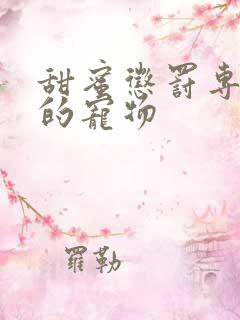 甜蜜懲罰專
的寵物
羅勒